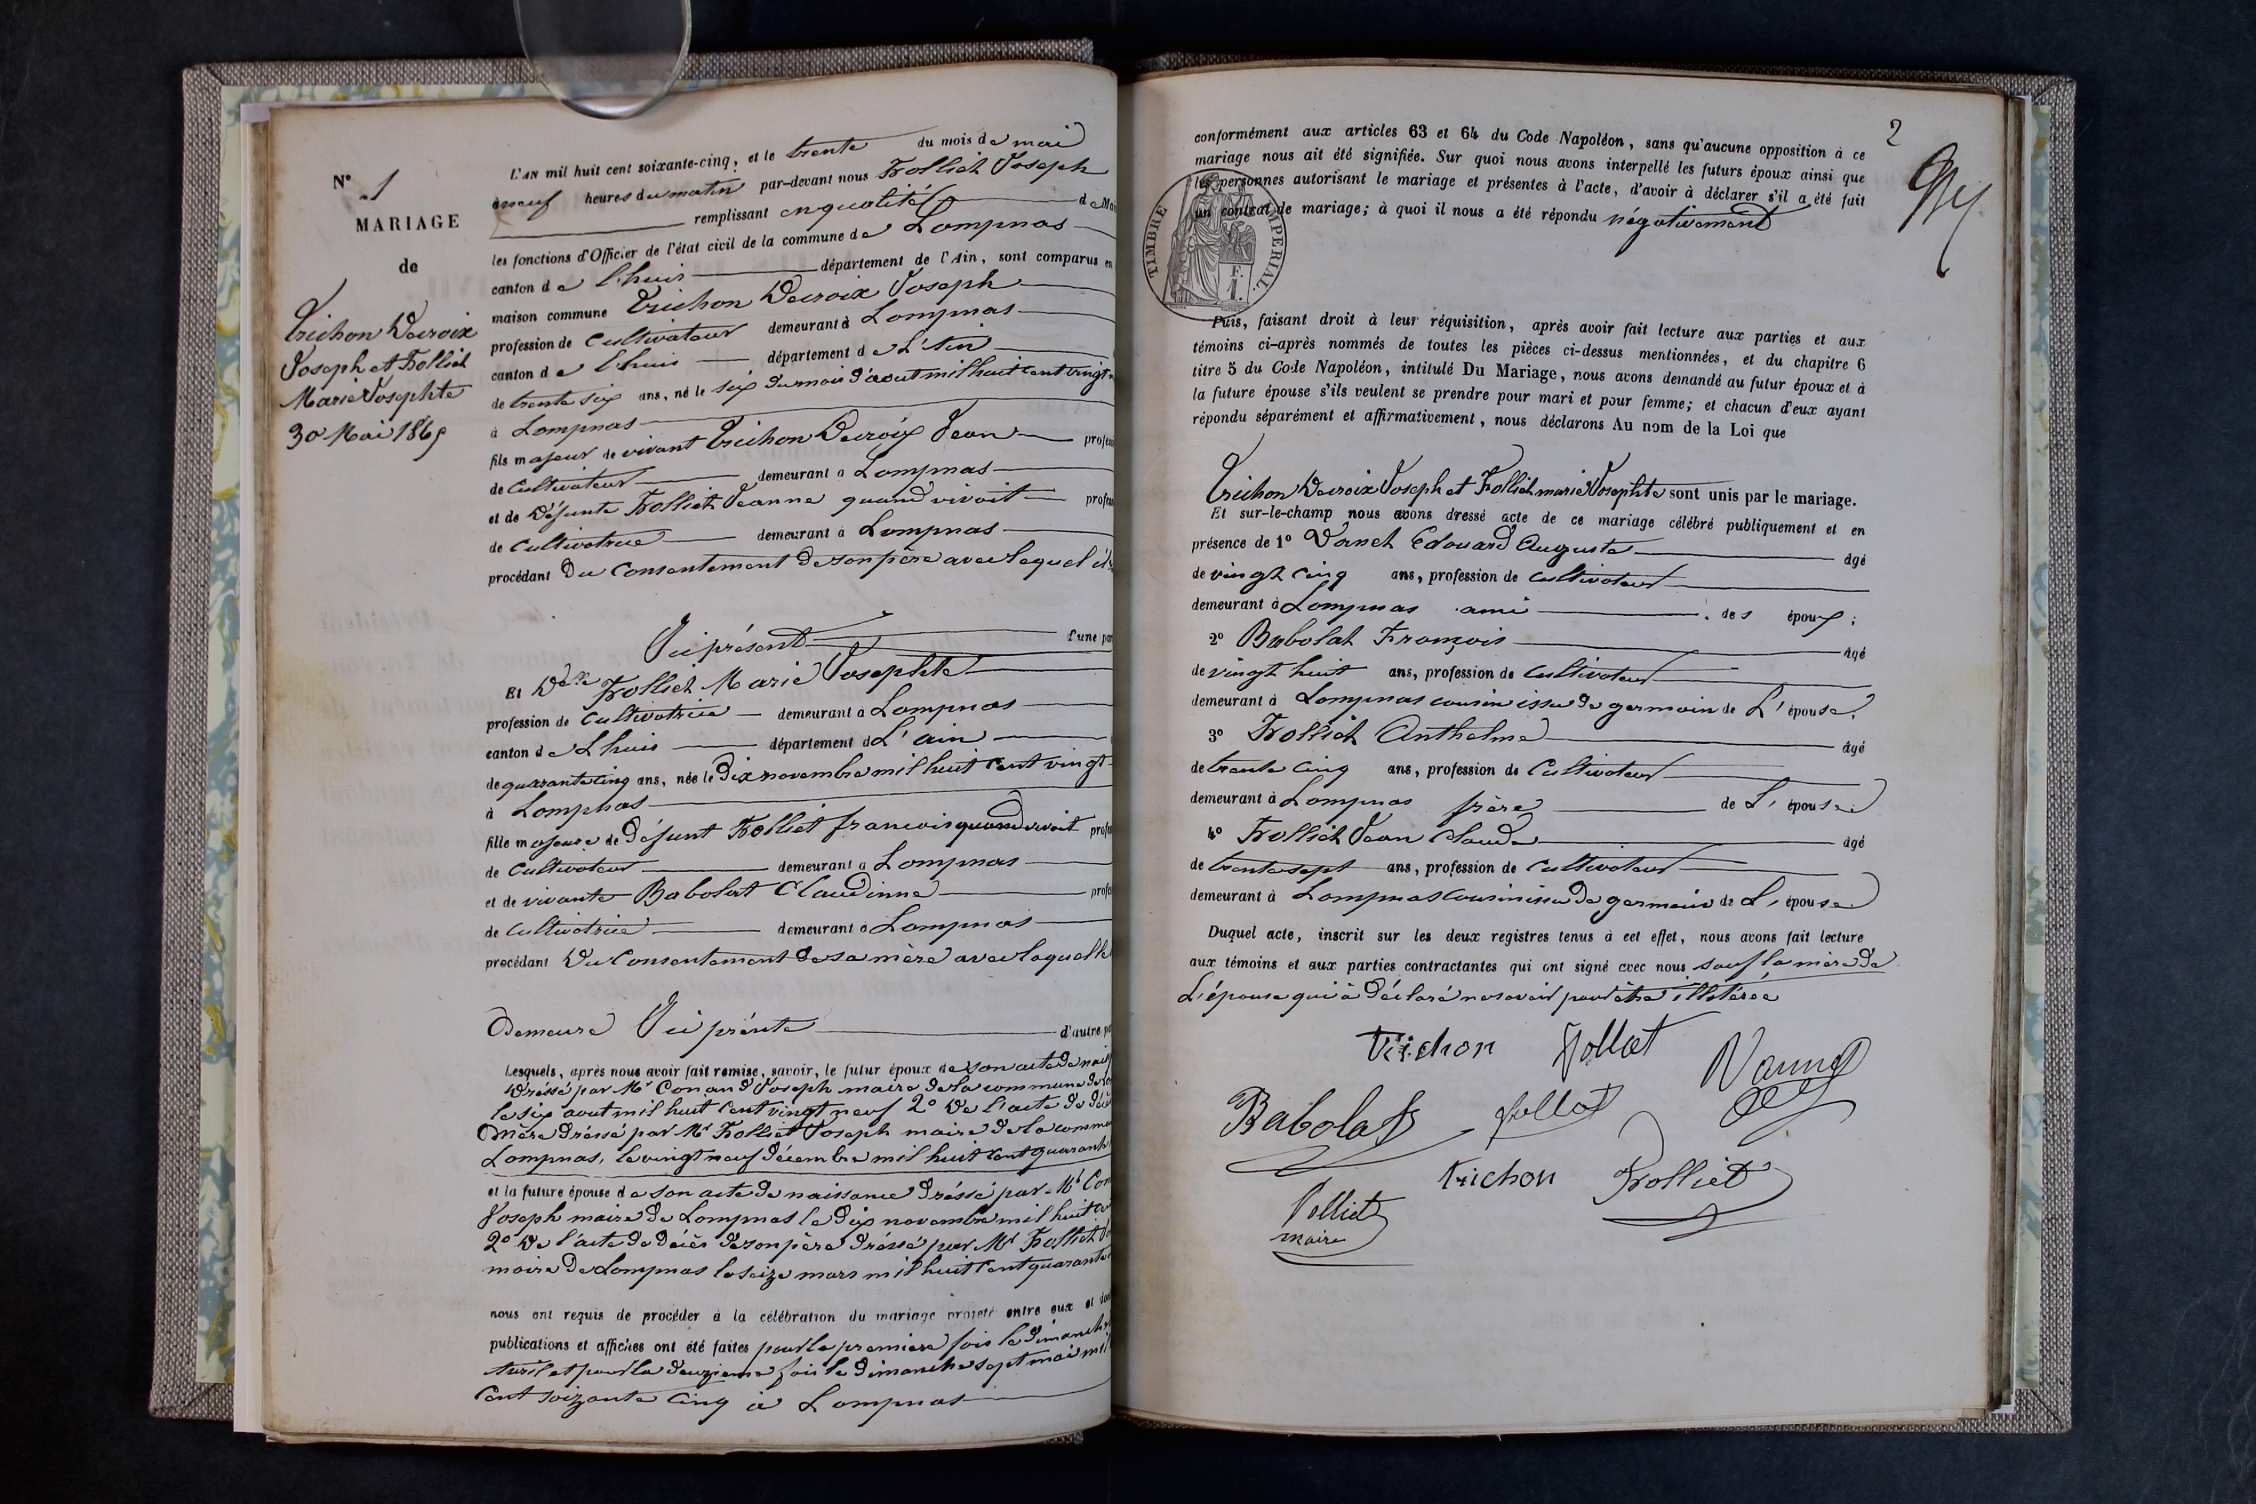 N° 1
MARIAGE
de
Trichon Decroix
Joseph et Trolliet
Marie Josephte
30 Mai 1865
L'AN mil huit cent soixante-cinq, et le trente du mois de mai
à neuf heures du matin par-devant nous Trolliet Joseph
remplissant en qualité de Mai
les fonctions d'Officier de l'état civil de la commune de Lompnas
canton de Lhuis département de l'Ain, sont comparus en
maison commune Trichon Decroix Joseph
profession de Cultivateur demeurant à Lompnas
canton de Lhuis département de L'Ain
de trente six ans, né le six du mois d'aout mil huit cent vingt n
à Lompnas
fils majeur de vivant Trichon Decroix Jean profess
de Cultivateur demeurant à Lompnas
et de Défunte Trolliet Jeanne quand vivait profess
de Cultivatrice demeurant à Lompnas
procédant Du Consentement de son père avec lequel il
Ici présent l'une par
Et Delle Trolliet Marie Josephte
profession de Cultivatrice demeurant à Lompnas
canton de Lhuis département de L'ain
de quarante cinq ans, née le Dix novembre mil huit cent vingt
à Lompnas
fille majeure de Défunt Trolliet francois quand vivait profess
de Cultivateur demeurant à Lompnas
et de vivante Babolat Claudinne profe
de Cultivatrice demeurant à Lompnas
procédant Du Consentement de sa mère avec laquelle
Demeure Ici prénte d'autre pa
Lesquels, après nous avoir fait remise, savoir, le futur époux de son acte de naiss
Dréssé par Mr Conand Joseph maire de la commune de Lo
le six aout mil huit cent vingt neuf 2° De l'acte de décè
mère dréssé par Mr Trolliet Joseph maire de la commu
Lompnas, le vingt neuf décembre mil huit cent quarante
et la future épouse de son acte de naissance Dréssé par Mr Con
Joseph maire de Lompnas le dix novembre mil huit ce
2° De l'acte de décès de son père dréssé par Mr Trolliet Jo
maire de Lompnas le seize mars mil huit cent quarante
nous ont requis de procéder à la célébration du mariage projeté entre eux et don
publications et affiches ont été faites pour la première fois le dimanche
Avril et pour la deuxieme fois le dimanche sept mai mil
Cent soixante cinq à Lompnas
2
conformément aux articles 63 et 64 du Code Napoléon, sans qu'aucune opposition à ce
mariage nous ait été signifiée. Sur quoi nous avons interpellé les futurs époux ainsi que
les personnes autorisant le mariage et présentes à l'acte, d'avoir à déclarer s'il a été fait
un contrat de mariage; à quoi il nous a été répondu négativement
TIMBRE IMPERIAL
Puis, faisant droit à leur réquisition, après avoir fait lecture aux parties et aux
témoins ci-après nommés de toutes les pièces ci-dessus mentionnées, et du chapitre 6
titre 5 du Code Napoléon, intitulé Du Mariage, nous avons demandé au futur époux et à
la future épouse s'ils veulent se prendre pour mari et pour femme; et chacun d'eux ayant
répondu séparément et affirmativement, nous déclarons Au nom de la Loi que
Trichon Decroix Joseph et Trolliet marie Josephte sont unis par le mariage.
Et sur-le-champ nous avons dressé acte de ce mariage célébré publiquement et en
présence de 1° Varnet Edouard Auguste âgé
de vingt cinq ans, profession de Cultivateur
demeurant à Lompnas ami des époux;
2° Babolat François âgé
de vingt huit ans, profession de Cultivateur
demeurant à Lompnas cousin issu de germain de L'épouse,
3° Trolliet Anthelme âgé
de trente cinq ans, profession de Cultivateur
demeurant à Lompnas frère de L'épouse
4° Trolliet Jean Claude âgé
de trente sept ans, profession de Cultivateur
demeurant à Lompnas cousin issu de germain de L'épouse
Duquel acte, inscrit sur les deux registres tenus à cet effet, nous avons fait lecture
aux témoins et aux parties contractantes qui ont signé avec nous sauf la mère de
L'épouse qui à déclaré ne savoir pour être illetérée
Trichon
Babolat
Trichon Trolliet
maire